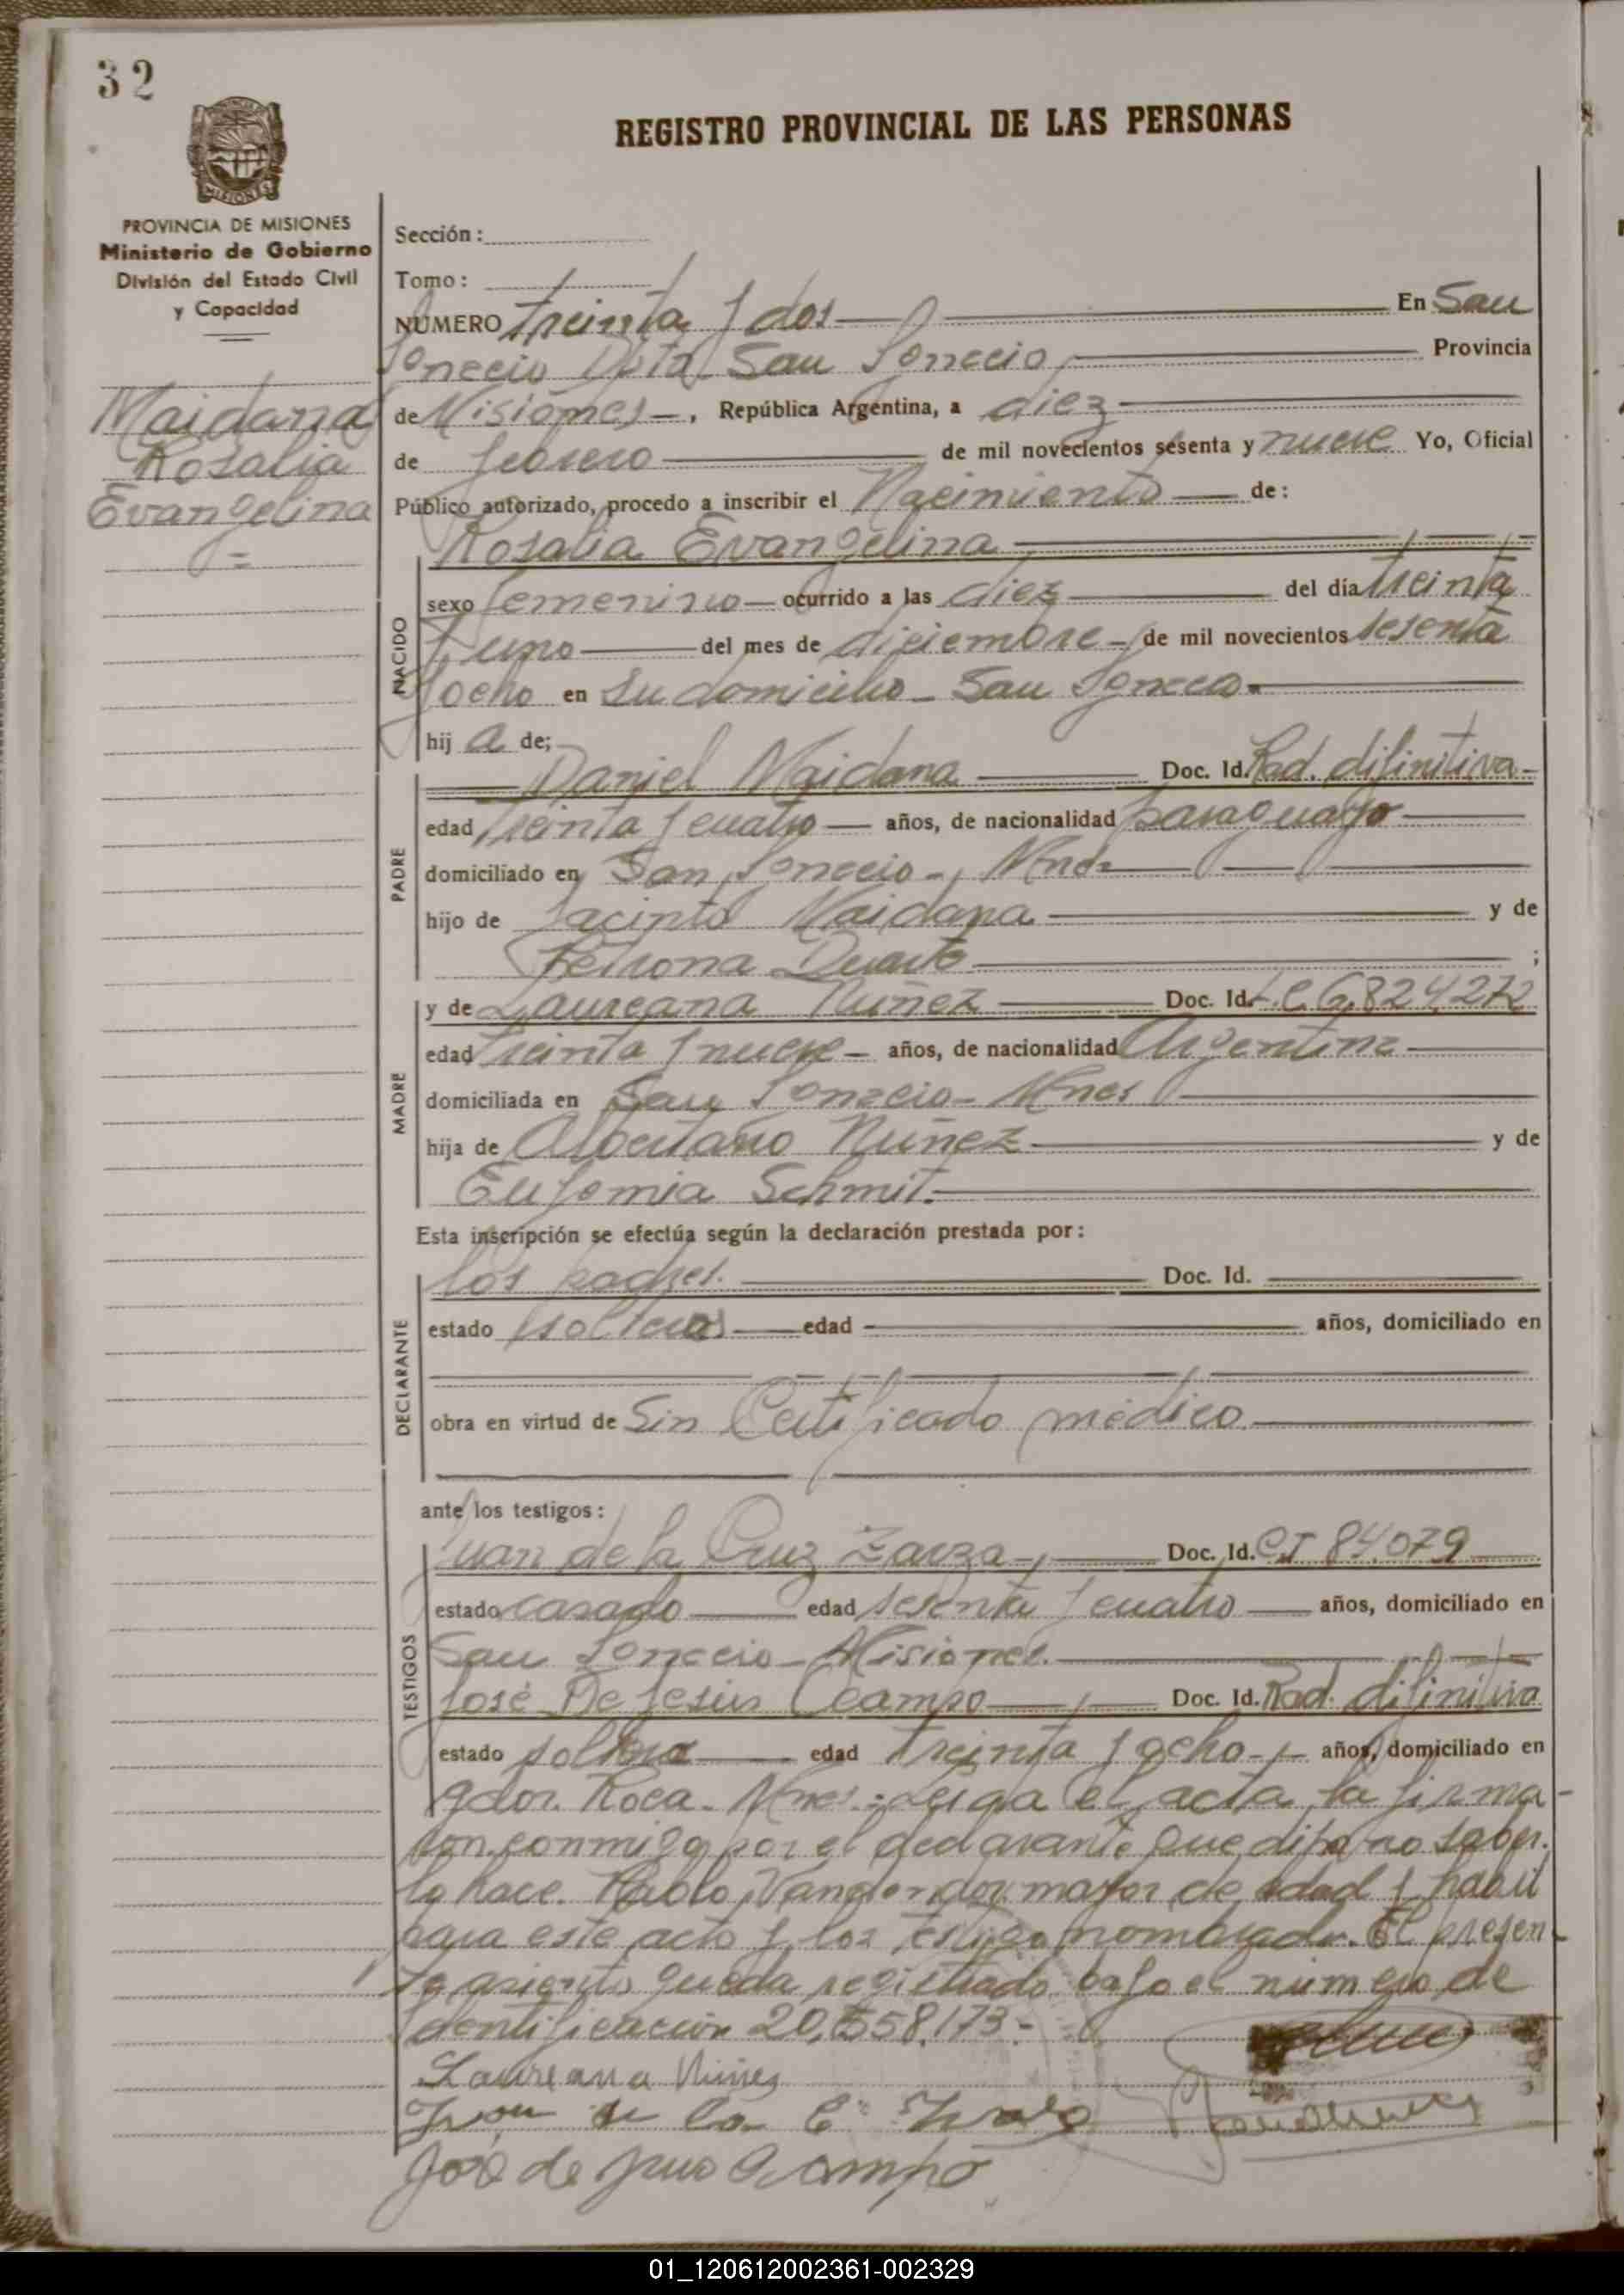 32
REGISTRO PROVINCIAL DE LAS PERSONAS
PROVINCIA DE MISIONES
Ministerio de Gobierno
División del Estado Civil
y Capacidad
Maidana
Rosalia
Evangelina
Sección:
Tomo:
NÚMERO treinta y dos En San
Ignacio Dpto San Ignacio Provincia
de Misiones, República Argentina, a diez
de febrero de mil novecientos sesenta y nueve Yo, Oficial
Público autorizado, procedo a inscribir el Nacimiento de:
Rosalia Evangelina
NACIDO
sexo femenino ocurrido a las diez del día treinta
y uno del mes de diciembre de mil novecientos sesenta
y ocho en su domicilio - San Ignacio.
hij a de;
PADRE
Daniel Maidana Doc. Id. Rad. difinitiva
edad treinta y cuatro años, de nacionalidad paraguayo
domiciliado en San Ignacio - Mnes
hijo de Jacinto Maidana y de
Petrona Duarte ;
MADRE
y de Laureana Nuñez Doc. Id. L.C 6.824.272
edad treinta y nueve años, de nacionalidad Argentina
domiciliada en San Ignacio - Mnes
hija de Albertano Nuñez y de
Eufemia Schmit.
Esta inscripción se efectúa según la declaración prestada por:
DECLARANTE
los padres. Doc. Id.
estado solteros edad años, domiciliado en
obra en virtud de Sin Certificado médico.
ante los testigos:
TESTIGOS
Juan de la Cruz Zarza Doc. Id. CI 84.079
estado casado edad sesenta y cuatro años, domiciliado en
San Ignacio - Misiones.
José De Jesús Ocampo Doc. Id. Rad. difinitiva
estado soltero edad treinta y ocho años, domiciliado en
gdor. Roca. Mnes. Leida el acta, la firma-
ron conmigo por el declarante que dijo no saber.
lo hace. Pablo mayor de edad y habil
para este acto y los testigo nombrado. El presen-
te asiento queda registrado bajo el número de
Identificación 20.558.173.-
Laureana Núñes
Juan de la C
José de Jesus Ocampo
01_120612002361-002329